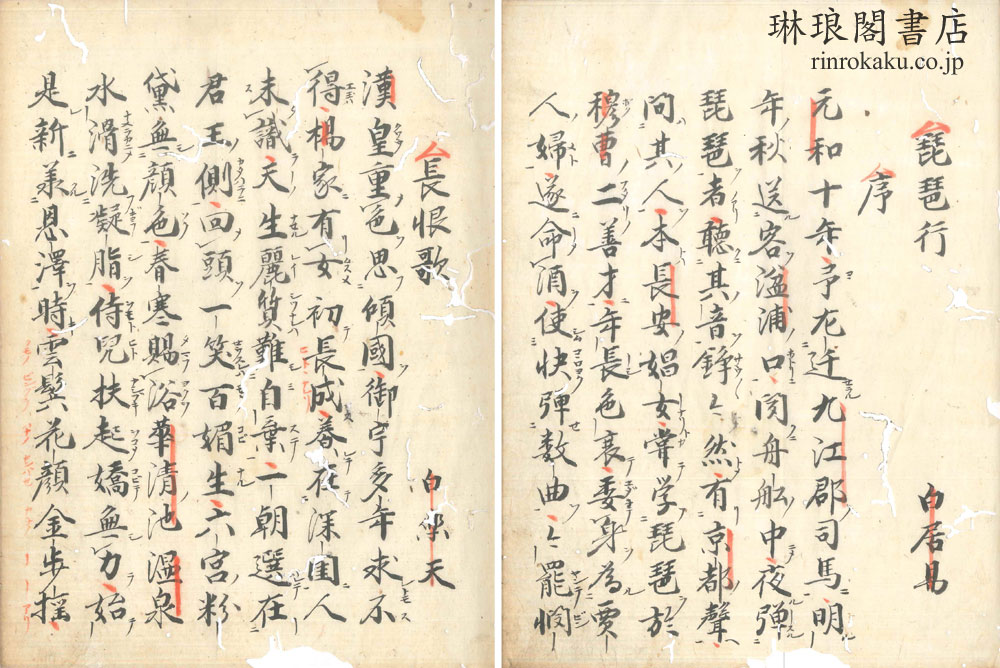 琳琅閣書店
rinrokaku.co.jp
琵琶行 白居易
序
元和十年予左迁九江郡司馬明
年秋送客湓浦口閔舟舩中夜弾
琵琶者聴其音錚〻然有京都聲
問其人本長安娼女甞学琵琶於
穆曹二善才年長色衰委身為賈
人婦遂命酒使快弾数曲〻罷憫
長恨歌 白樂天
漢皇重色思傾國御宇多年求不
得楊家有女初長成養在深閨人
未識天生麗質難自棄一朝選在
君王側回頭一笑百媚生六宮粉
黛無顔色春寒賜浴華清池温泉
水滑洗凝脂侍兒扶起嬌無力始
是新羕恩澤時雲鬢花顔金歩揺